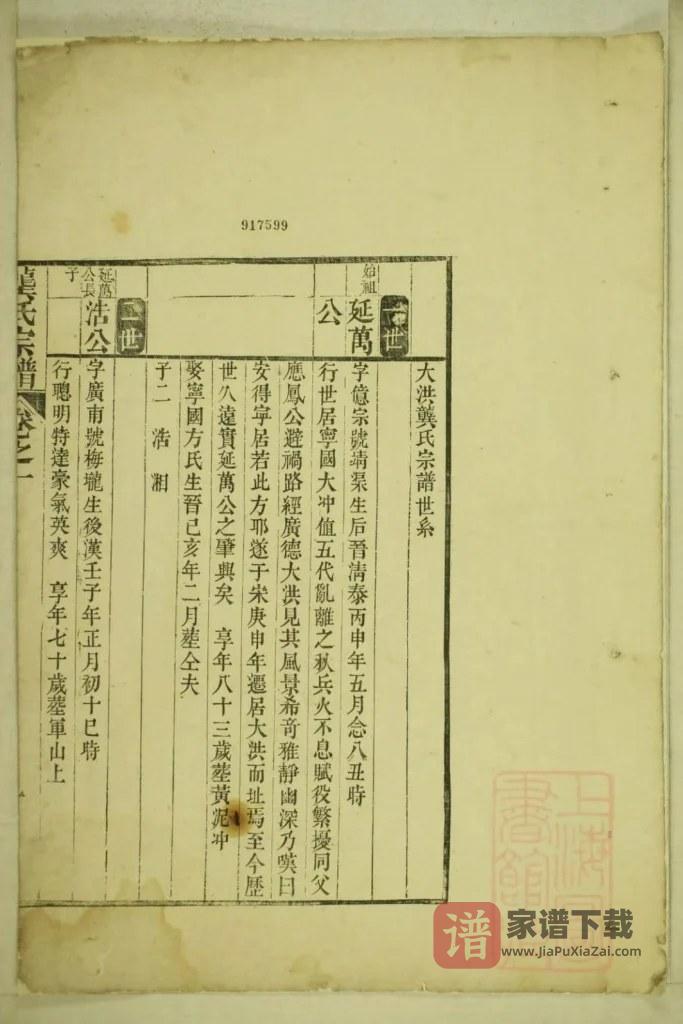 917599
大洪龔氏宗譜世系
一世
始祖
延萬公
字億宗號靖渠生后晉清泰丙申年五月念八丑時
行世居寧國大冲值五代亂離之秋兵火不息賦役繁擾同父
應鳳公避禍路經廣德大洪見其風景希奇雅靜幽深乃嘆曰
安得寧居若此方耶遂于宋庚申年遷居大洪而址焉至今歷
世久遠實延萬公之肇興矣 享年八十三歲塟黃泥冲
娶寧國方氏生晉己亥年二月塟仝夫
子二 浩 湘
二世
延萬公長子
浩公
字廣甫號梅壠生後漢壬子年正月初十巳時
行聰明特達豪氣英爽 享年七十歲塟軍山上
龔氏宗譜 卷之一
上海圖書館
谱 家谱下载
www.JiaPuXiaZai.com